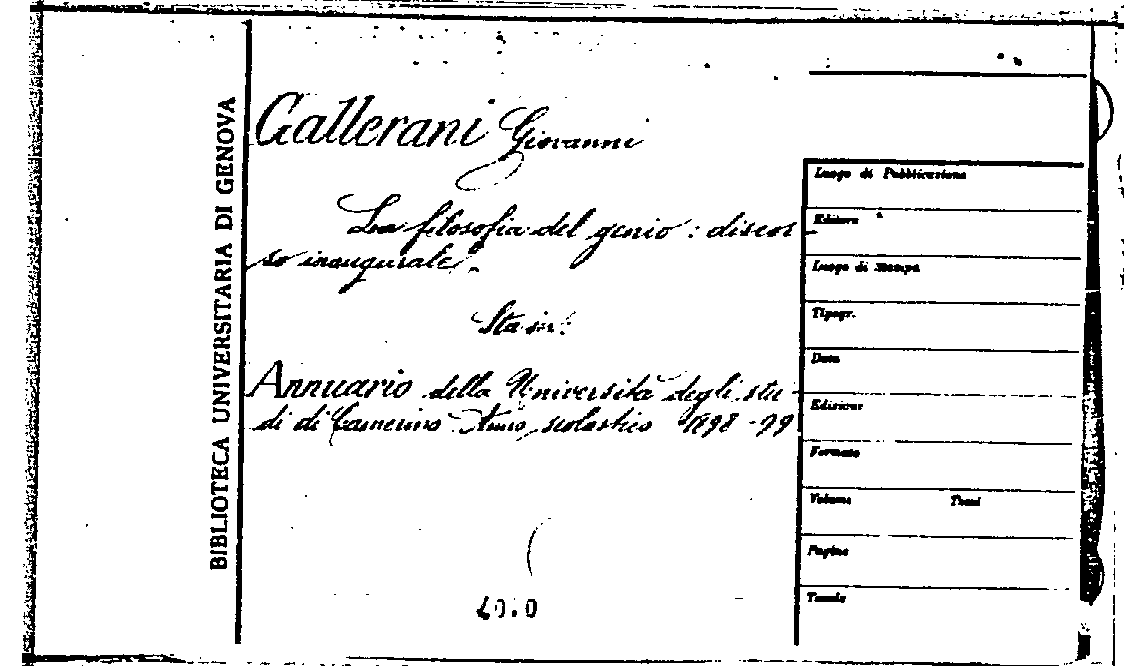 BIBLIOTECA UNIVERSITARIA DI GENOVA
Gallerani Giovanni
La filosofia del genio : discor-
so inaugurale.
Sta in:
Annuario della Università degli stu-
di di Camerino Anno scolastico 1898-99
Luogo di Pubblicazione
Editore
Luogo di stampa
Tipogr.
Data
Edizione
Formato
Volume Tomi
Pagine
Tavole